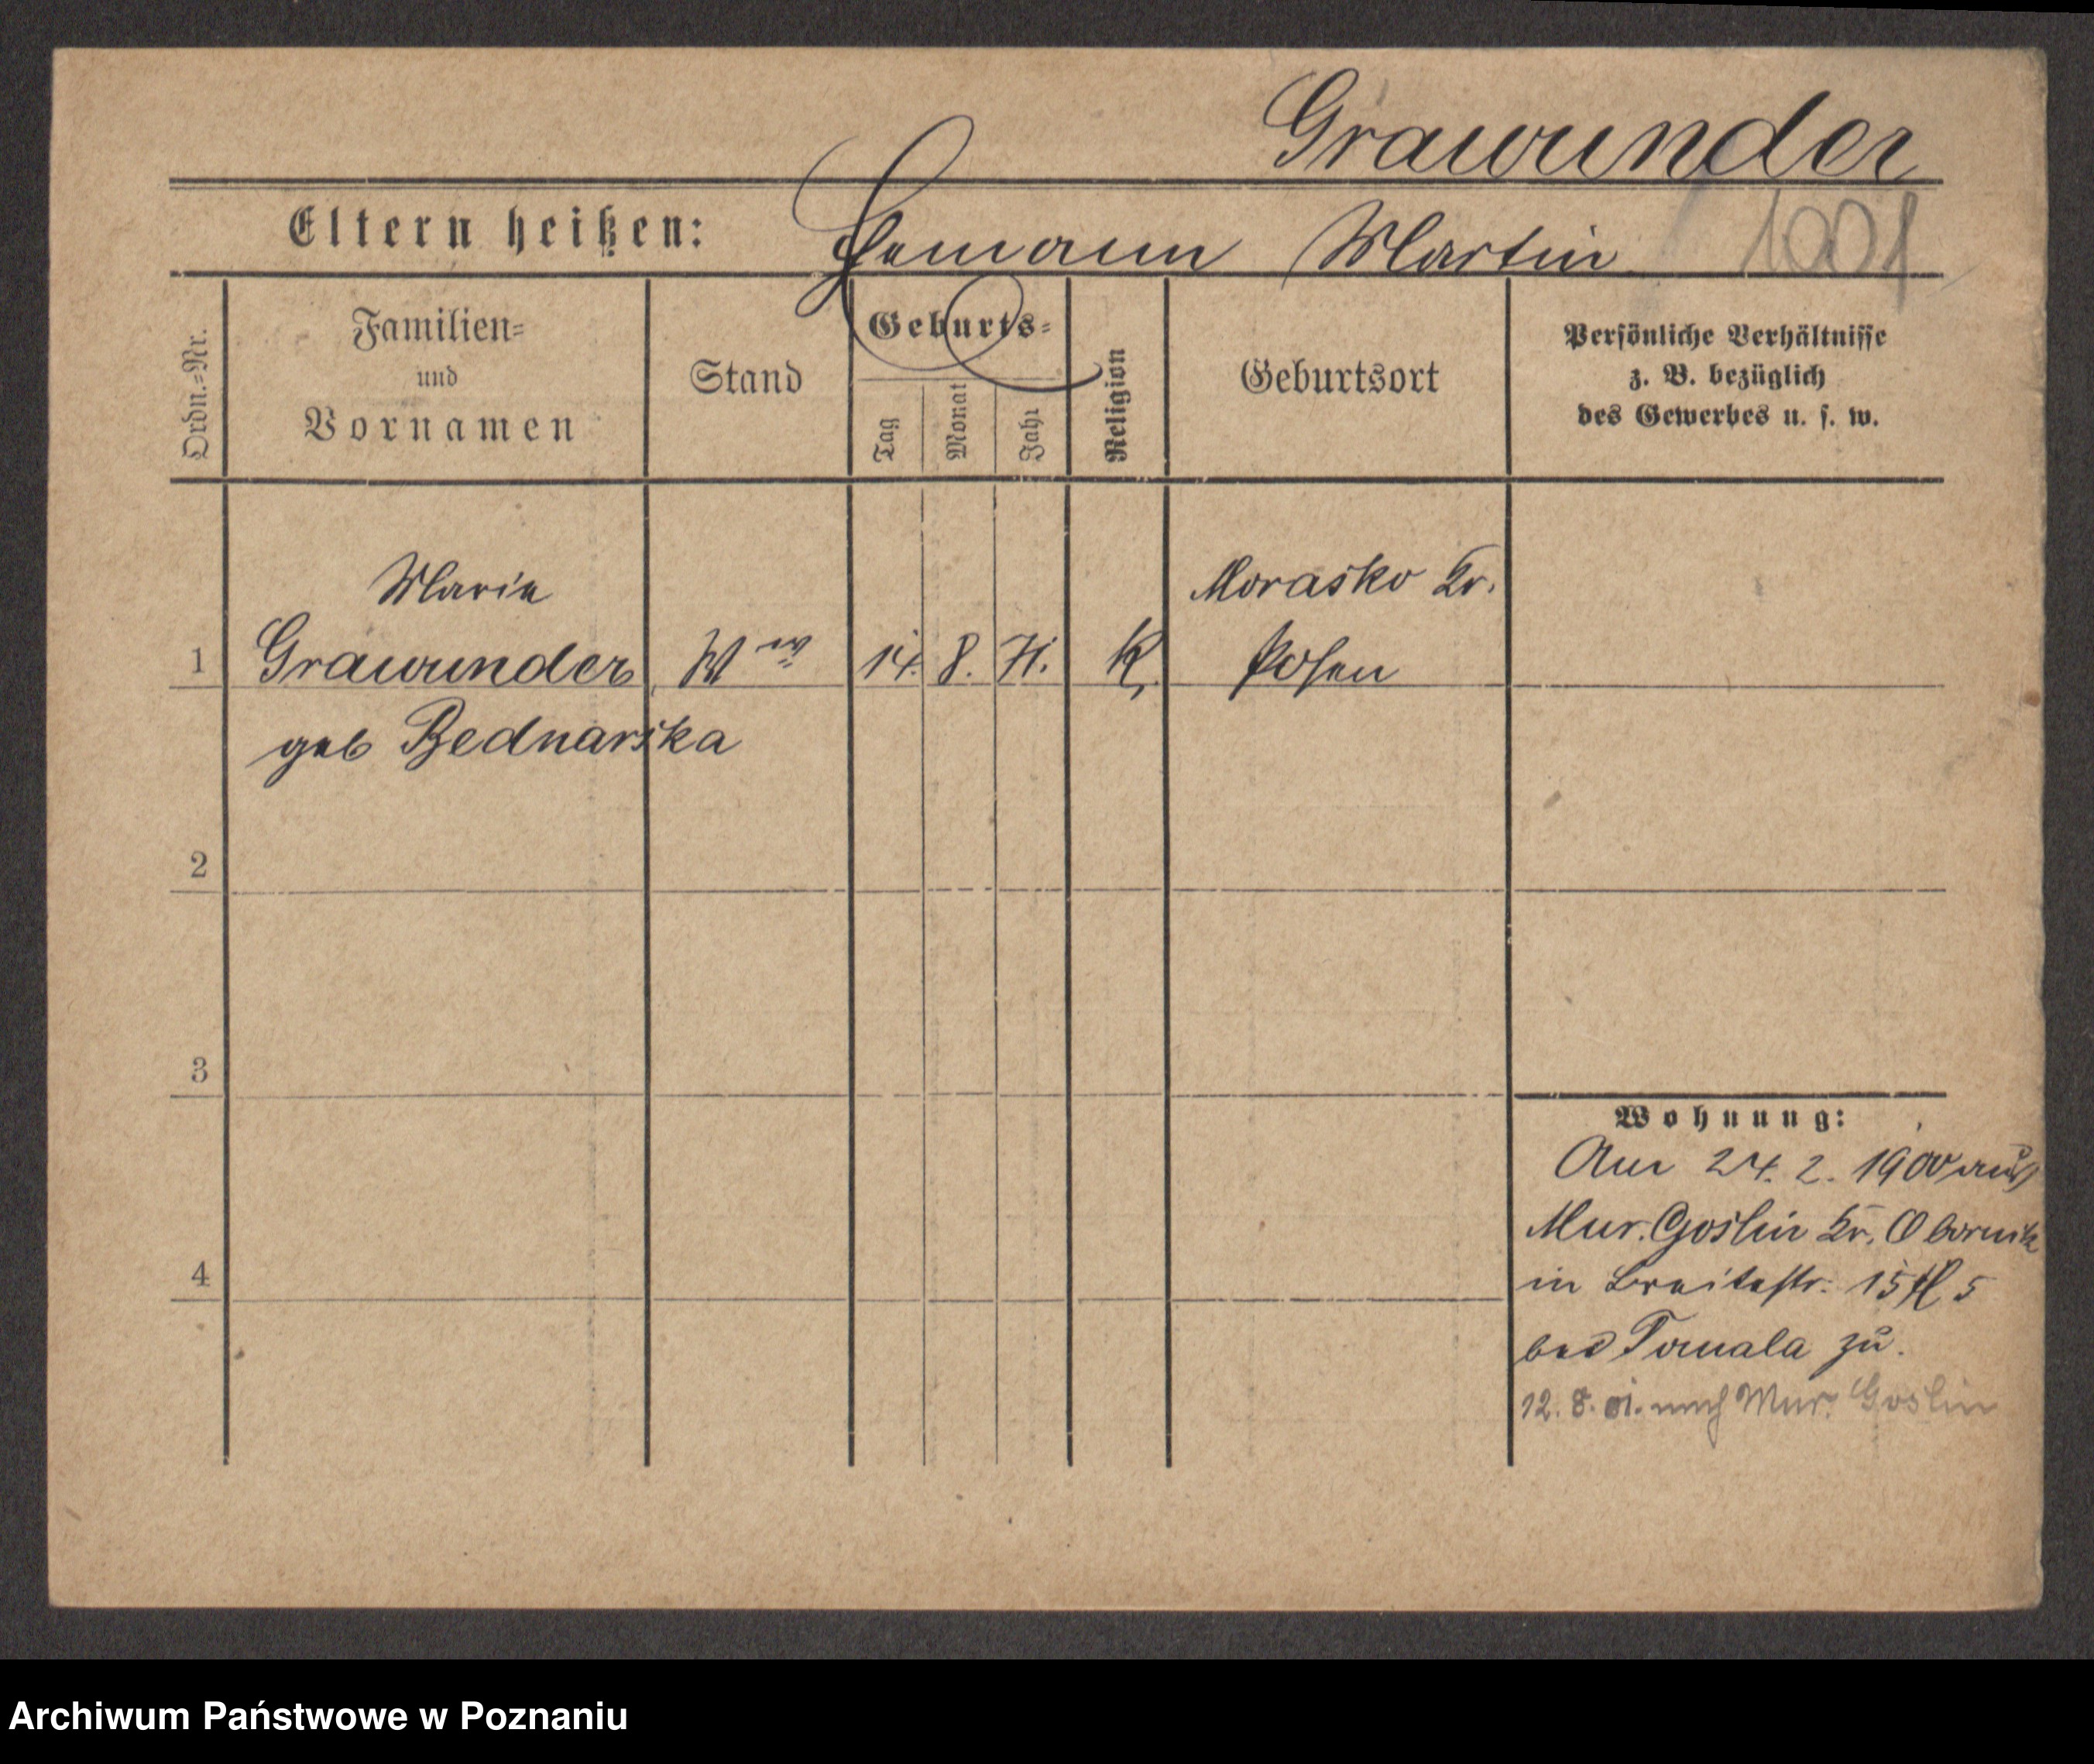 Grawunder
Eltern heißen: Ehemann Martin
Ordn.=Nr.
Familien=
und
Vornamen
Stand
Geburts=
Tag
Monat
Jahr
Religion
Geburtsort
Persönliche Verhältnisse
z. B. bezüglich
des Gewerbes u. s. w.
Marie Morasko Kr.
1 Grawunder Ww 14. 8. 71. K. Posen
geb Bednarska
2
3
4
Wohnung:
Am 24. 2. 1900 aus
Mur. Goslin Kr. Obornik
in Breitestr. 15 H 5
bei Tomala zu.
12. 8. 01. nach Mur. Goslin
Archiwum Państwowe w Poznaniu